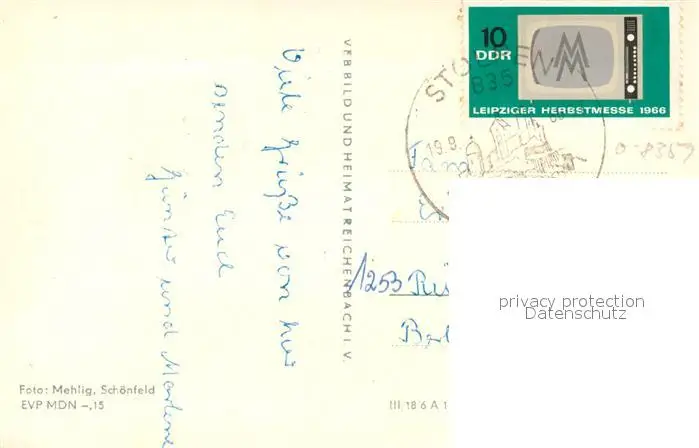 Viele Grüße von hier
senden Euch
Günter und Marlene
VEB BILD UND HEIMAT REICHENBACH I. V.
Foto: Mehlig, Schönfeld
EVP MDN –,15
10
DDR
LEIPZIGER HERBSTMESSE 1966
STOLPEN
835
19.9.
Fam
1253 Rü
III 18 6 A 1
0-8359
privacy protection
Datenschutz